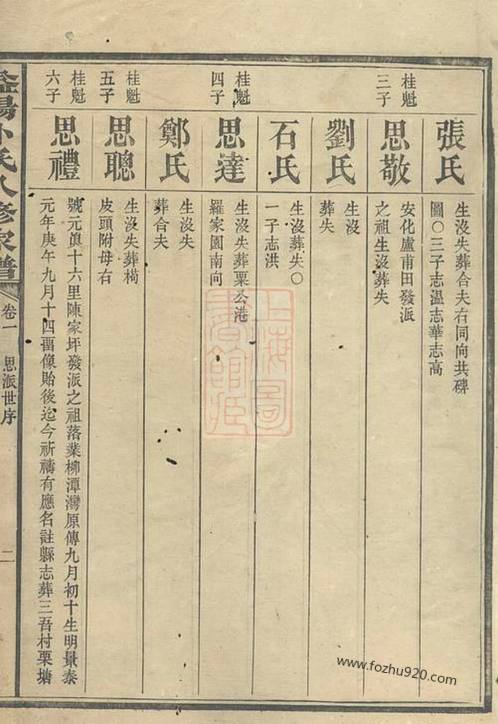 張氏
生沒失葬合夫右同向共碑
圖○三子志溫志華志高
桂魁
三子
思敬
安化盧甫田發派
之祖生沒葬失
劉氏
生沒
葬失
石氏
生沒葬失○
一子志洪
桂魁
四子
思達
生沒失葬粟公港
羅家園南向
鄭氏
生沒失
葬合夫
桂魁
五子
思聰
生沒失葬
皮頭附母右
桂魁
六子
思禮
號元真十六里陳家坪發派之祖落業柳潭灣原傳九月初十生明景泰
元年庚午九月十四畱像貽後迄今祈禱有應名註縣志葬三吾村栗塘
益陽卜氏八修家譜
卷一
思派世序
二
上海圖書館藏
www.fozhu920.com